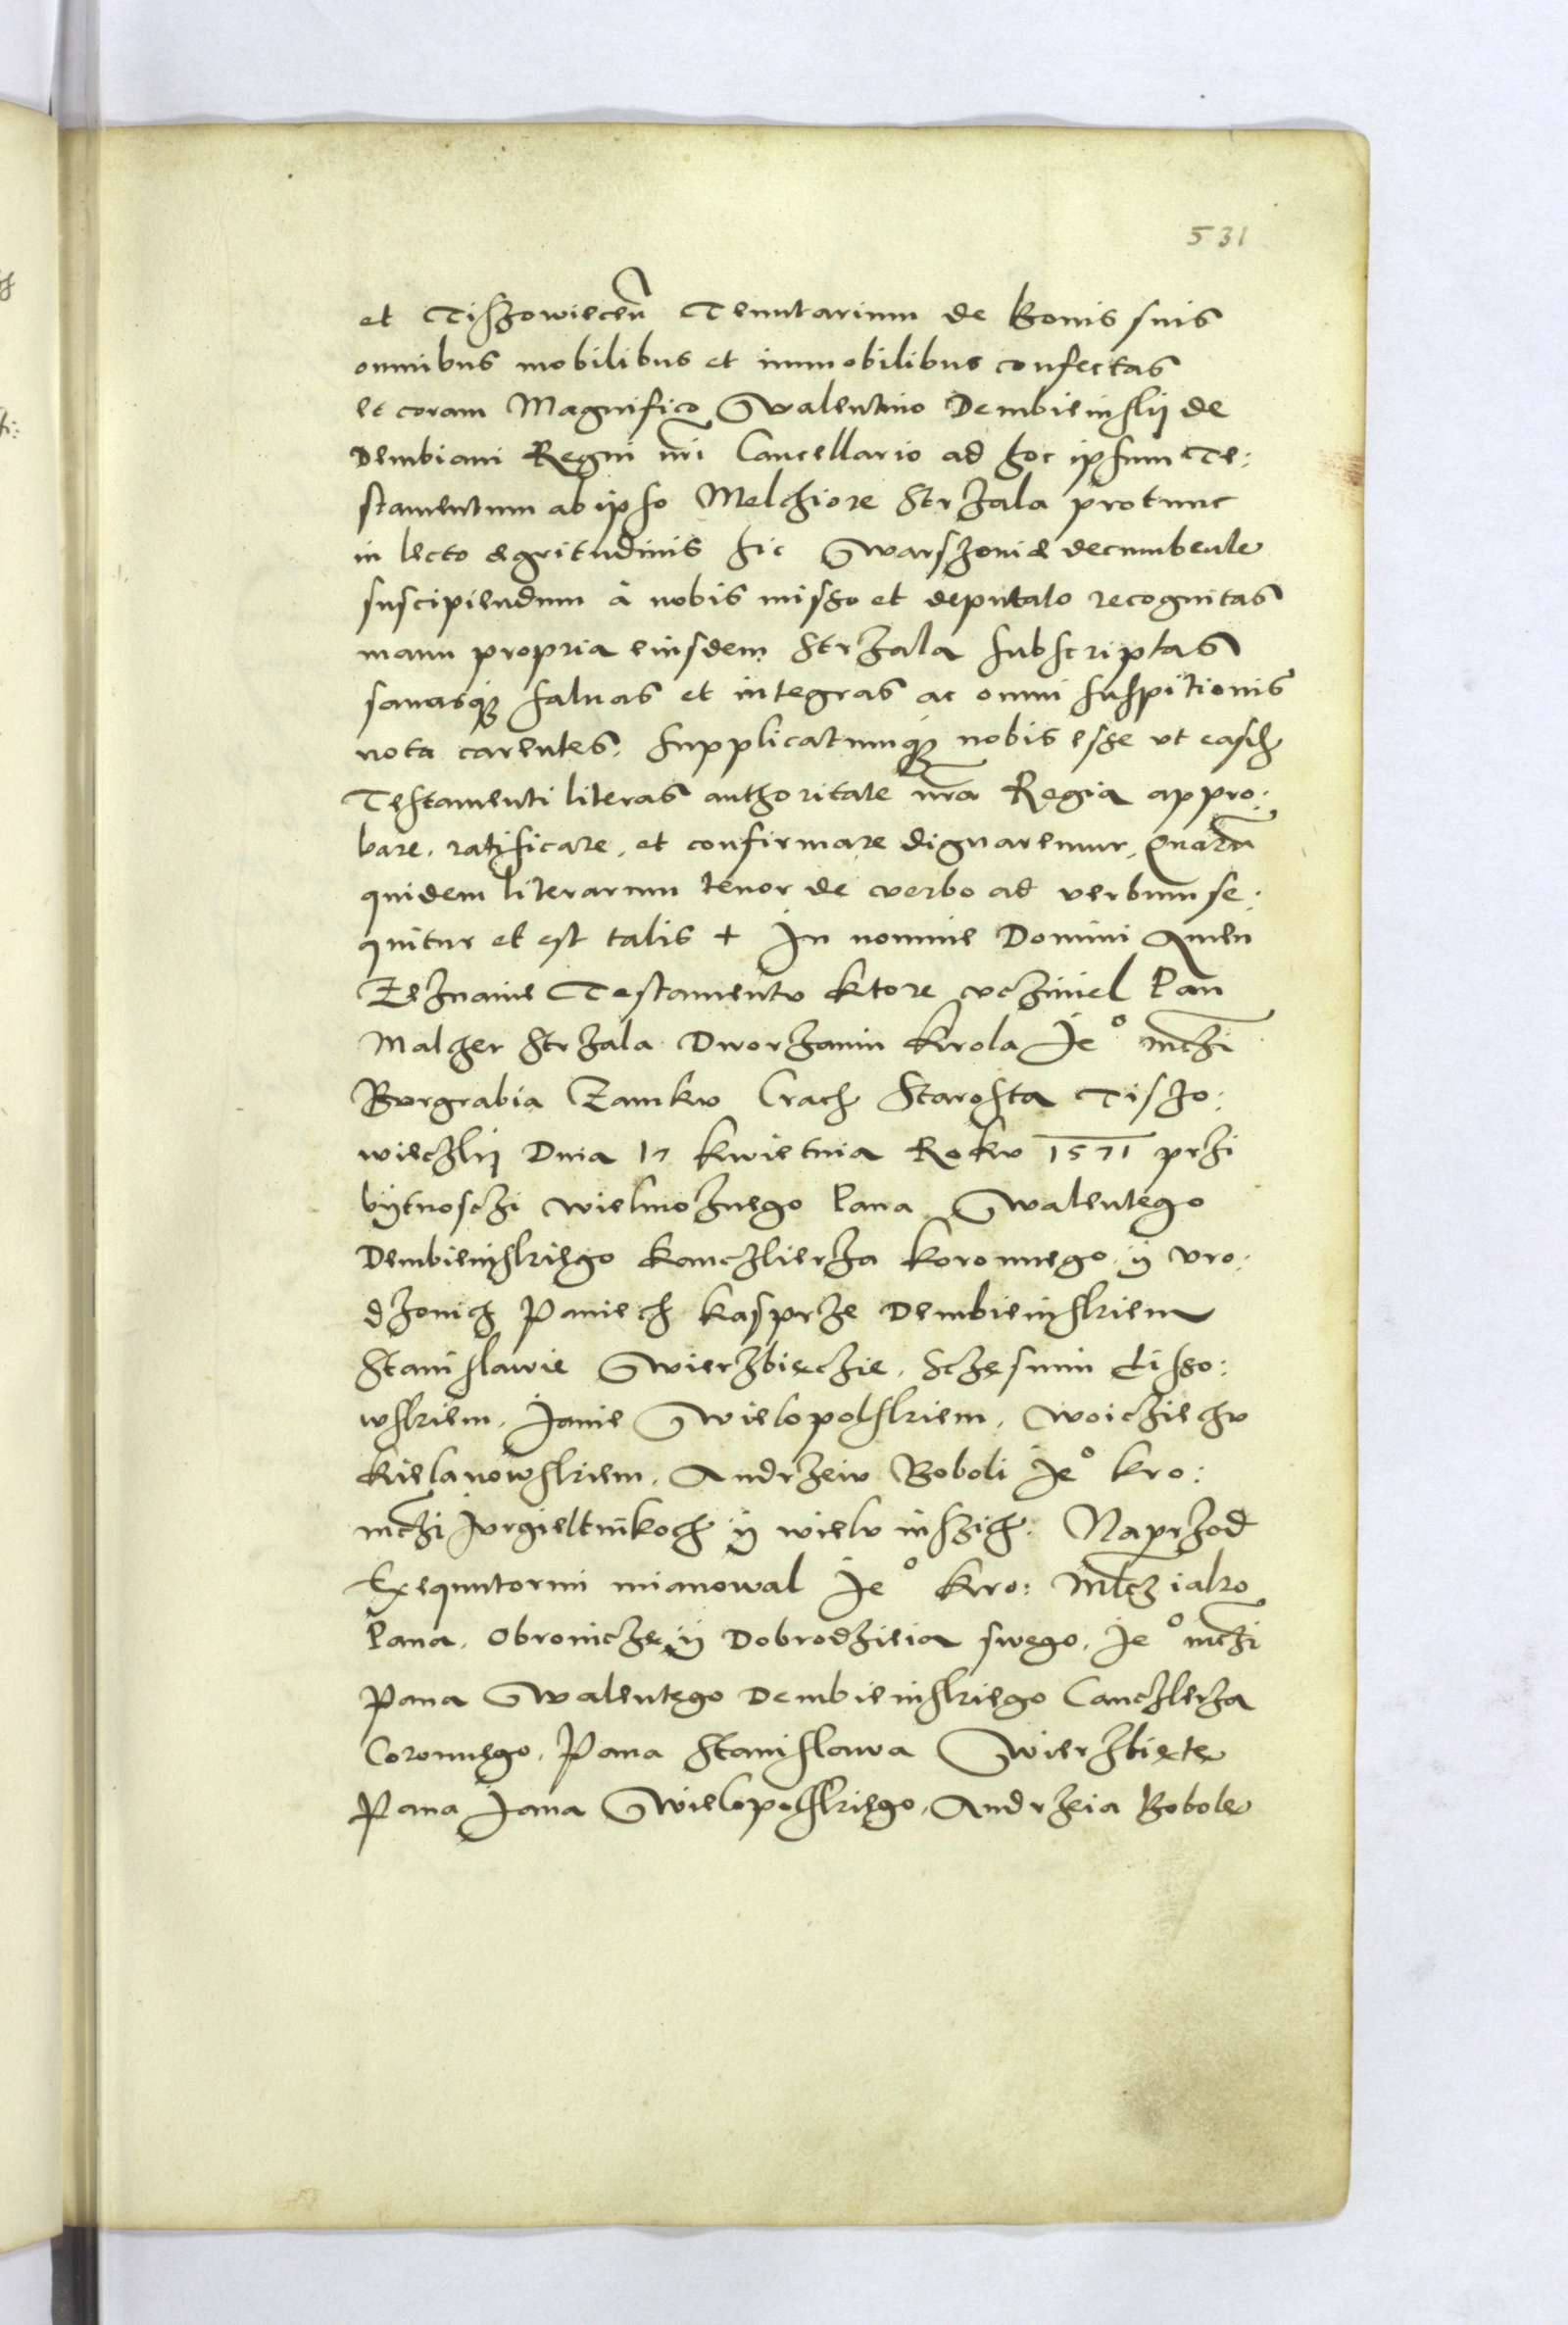 531
et Tiſzowiecen̄ Tenutarium de Bonis suis
omnibus mobilibus et immobilibus confectas
et coram Magnifico Walentino Dembieinſkij de
Dembiani Regni nr̄i Cancellario ad hoc ipſum Te:
stamentum ab ipſo Melchiore Strzala protunc
in lecto egritudinis hic Warszouiæ decumbente
suscipiendum à nobis misſo et deputato recognitas
manu propria eiusdem Strzala ſubſcriptas
sanasq̨ ſaluas et integras ac omni ſuſpitionis
nota carentes. Supplicatumq̨ nobis eſse vt easd
Teſtamenti literas authoritate nr̄a Regia appro:
bare, ratificare, et confirmare dignaremur, Quarū
quidem literarum tenor de verbo ad verbum se:
quitur et est talis + In nomine Domini Amen
Zeznanie Testamentu ktore vcziniel Pan
Malcher Strzala Dworzanin Krola Je° mczi
Burgrabia Zamku Crach Staroſta Tiſzo:
wieczkij Dnia 17 Kwietnia Roku 1571 przi
bÿtnosczi wielmoznego Pana Walentego
Dembieinſkiego Kanczlierza Koronnego ÿ vro:
dzonich Paniech Kasprze Dembieinſkiem
Staniſlawie Wierzbięczie, Sczęsnim Liſſo:
wſkiem, Janie Wielopolſkiem, Woicziechu
Kielanowſkiem, Andrzeiu Boboli Je° Kro:
mczi Jurgieltnikoch ÿ wielu inſzich: Naprzod
Exequutormi mianowal Je° Kro: Mczi iako
Pana, Obronicze ÿ Dobrodzieia swego, Je° mczi
Pana Walentego Dembieinſkiego Canczlerza
Coronnego, Pana Staniſlawa Wierzbięte
Pana Jana Wielopolſkiego, Andrzeia Bobole